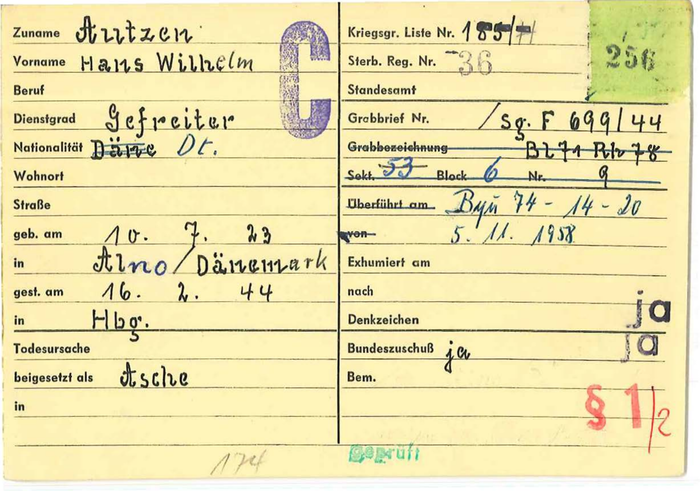 Zuname Autzen
Vorname Hans Wilhelm
Beruf
Dienstgrad Gefreiter
Nationalität Däne Dt.
Wohnort
Straße
geb. am 10. 7. 23
in Alno / Dänemark
gest. am 16. 2. 44
in Hbg.
Todesursache
beigesetzt als Asche
in
C
Kriegsgr. Liste Nr. 185/
Sterb. Reg. Nr. 36
256
Standesamt
Grabbrief Nr. / sg. F 699/44
Grabbezeichnung Bl 71 Rh 78
Sekt. 53 Block 6 Nr. 9
Überführt am 74 - 14 - 20
von 5. 11. 1958
Exhumiert am
nach
Denkzeichen ja
Bundeszuschuß ja ja
Bem.
§ 1/2
174
Geprüft